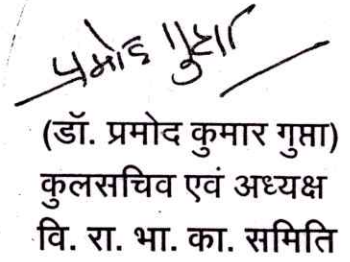 प्रमोद गुप्ता
(डॉ. प्रमोद कुमार गुप्ता)
कुलसचिव एवं अध्यक्ष
वि. रा. भा. का. समिति